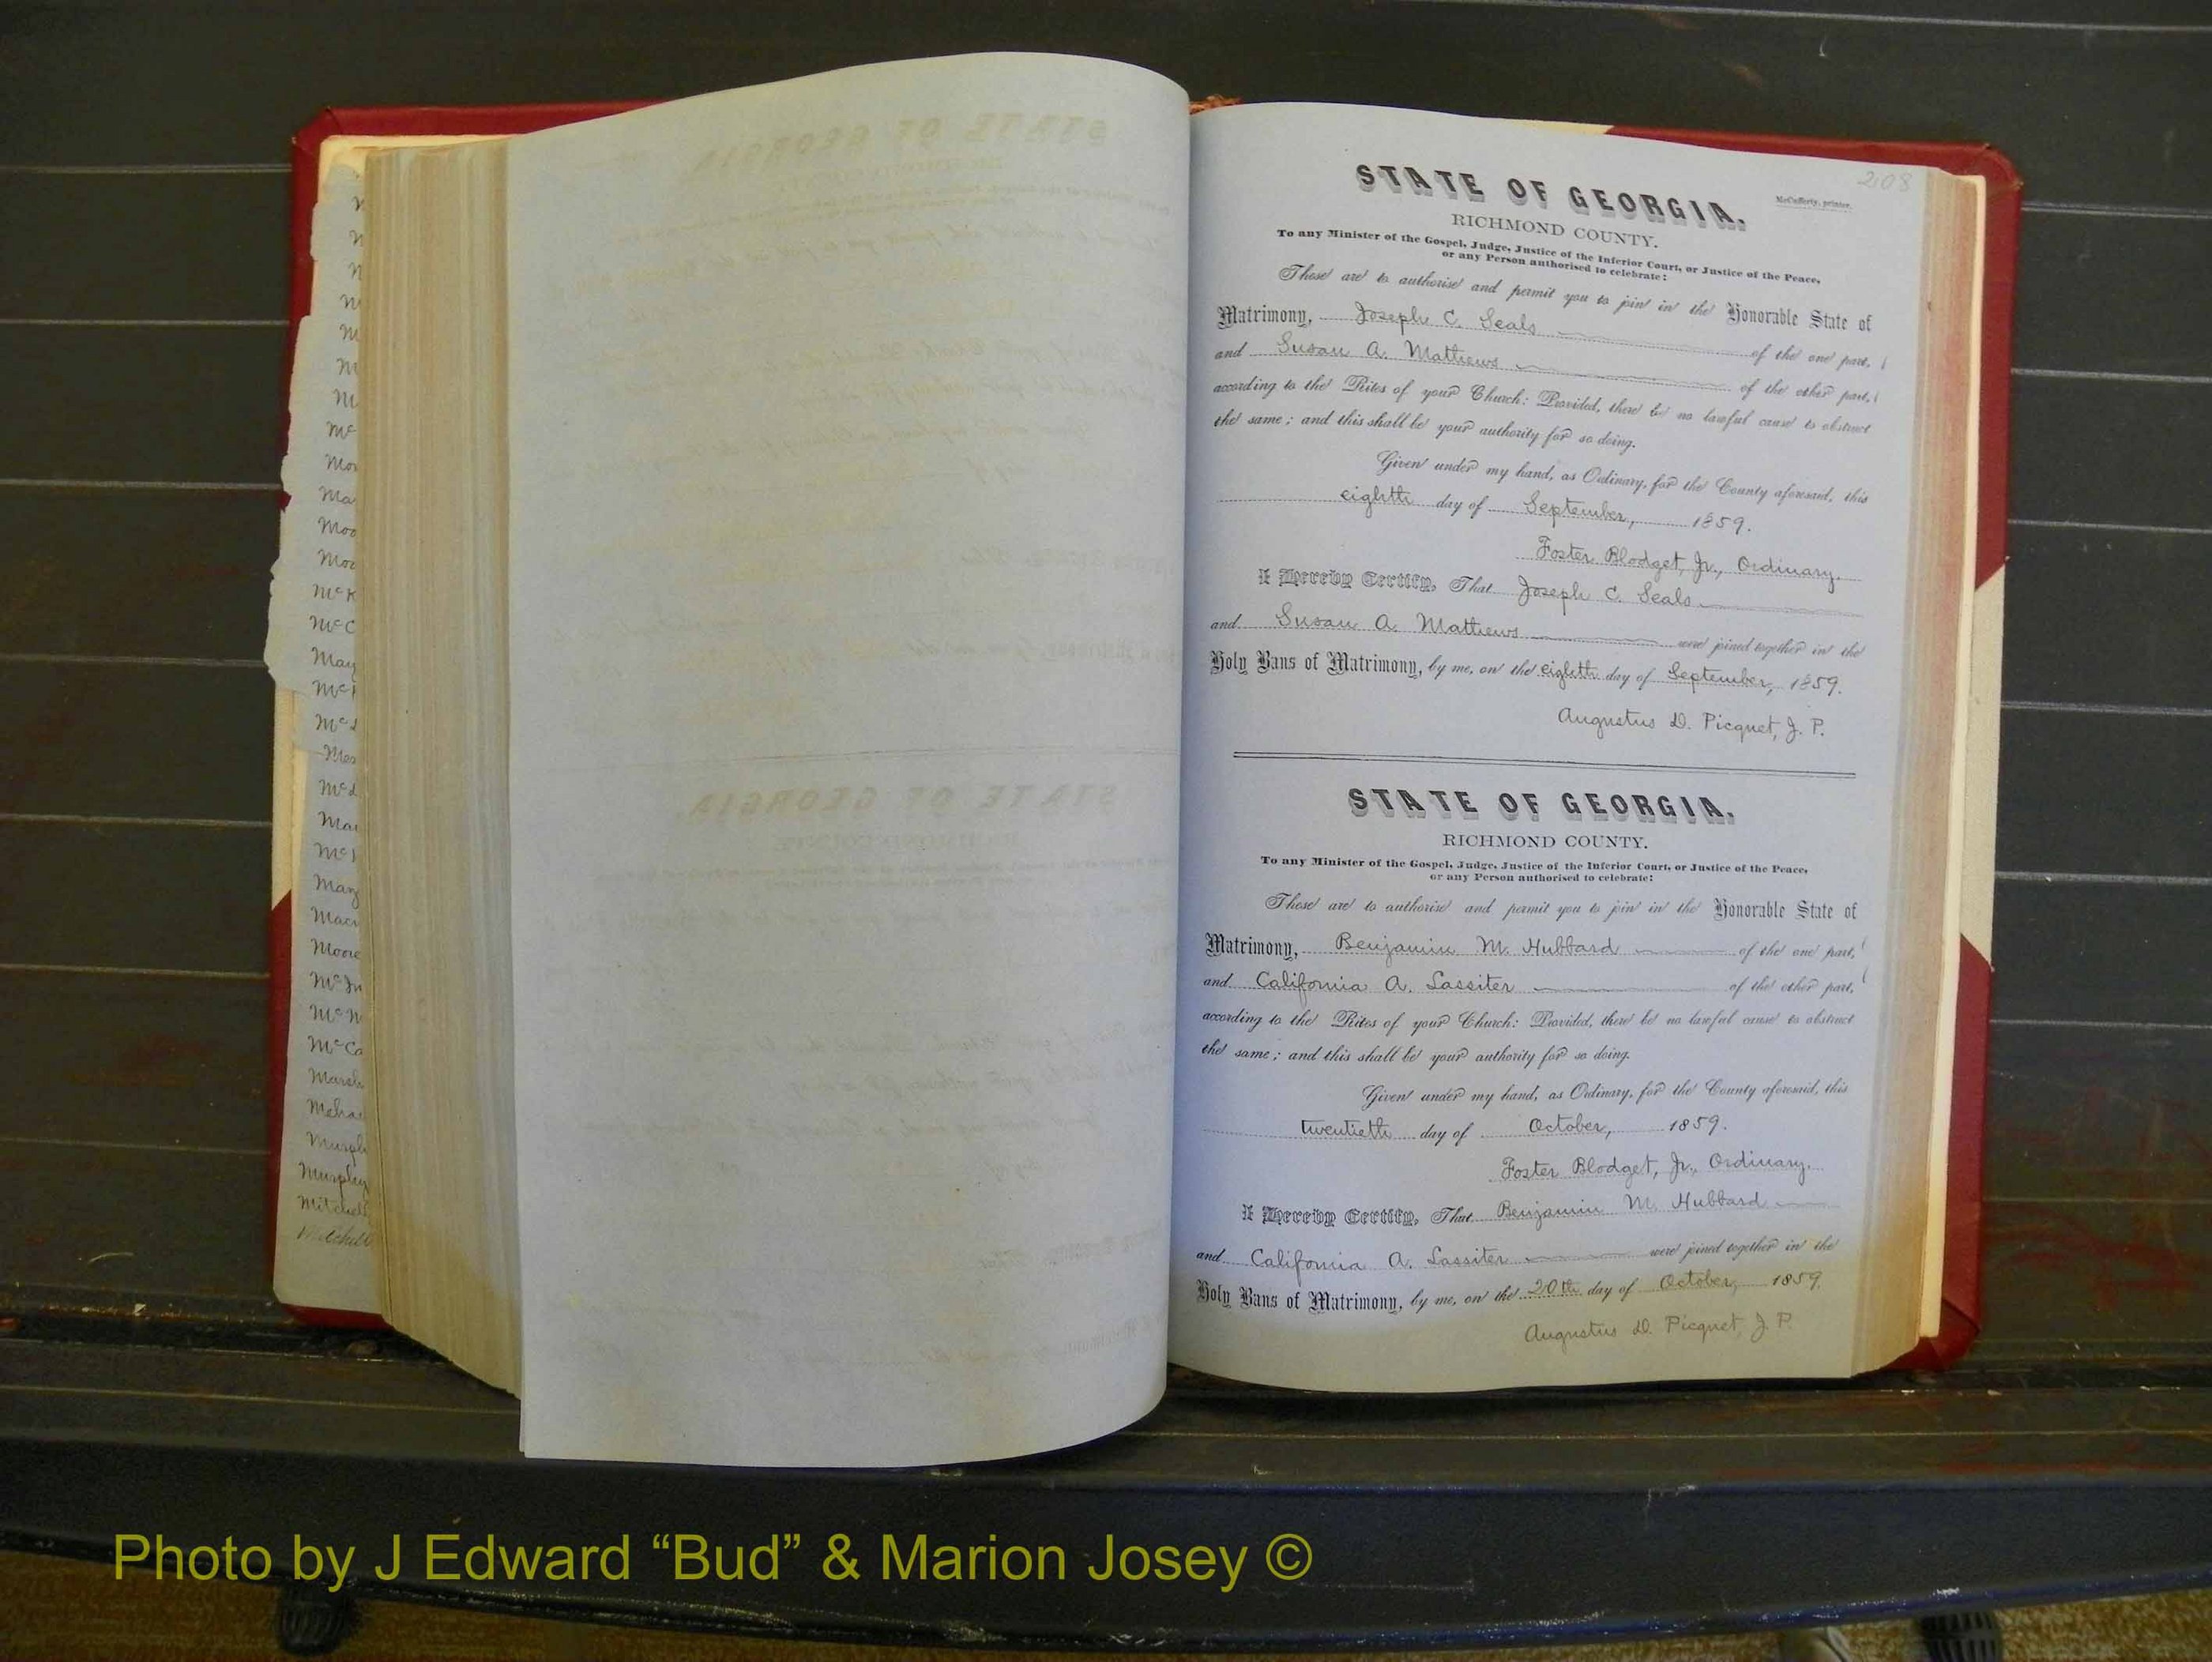 Mc
Mor
Ma
Moo
Moo
McK
McC
May
Mc
Mc
Mes
Mc
Mar
Mc
Mary
Macn
Moore
McIn
McN
McCa
Marsh
Meha
Murph
Murphy
Mitchell
Mitchell
208
STATE OF GEORGIA.
McCafferty, printer.
RICHMOND COUNTY.
To any Minister of the Gospel, Judge, Justice of the Inferior Court, or Justice of the Peace,
or any Person authorised to celebrate:
These are to authorise and permit you to join in the Honorable State of
Matrimony, Joseph C. Seals of the one part,
and Susan A. Mathews of the other part,
according to the Rites of your Church: Provided, there be no lawful cause to obstruct
the same; and this shall be your authority for so doing.
Given under my hand, as Ordinary, for the County aforesaid, this
eighth day of September, 1859.
Foster Blodget, Jr., Ordinary.
I Hereby Certify, That Joseph C. Seals
and Susan A. Mathews were joined together in the
Holy Bans of Matrimony, by me, on the eighth day of September, 1859.
Augustus D. Picquet, J. P.
STATE OF GEORGIA.
RICHMOND COUNTY.
To any Minister of the Gospel, Judge, Justice of the Inferior Court, or Justice of the Peace,
or any Person authorised to celebrate:
These are to authorise and permit you to join in the Honorable State of
Matrimony, Benjamin M. Hubbard of the one part,
and California A. Lassiter of the other part,
according to the Rites of your Church: Provided, there be no lawful cause to obstruct
the same; and this shall be your authority for so doing.
Given under my hand, as Ordinary, for the County aforesaid, this
twentieth day of October, 1859.
Foster Blodget, Jr., Ordinary.
I Hereby Certify, That Benjamin M. Hubbard
and California A. Lassiter were joined together in the
Holy Bans of Matrimony, by me, on the 20th day of October, 1859.
Augustus D. Picquet, J. P.
Photo by J Edward “Bud” & Marion Josey ©